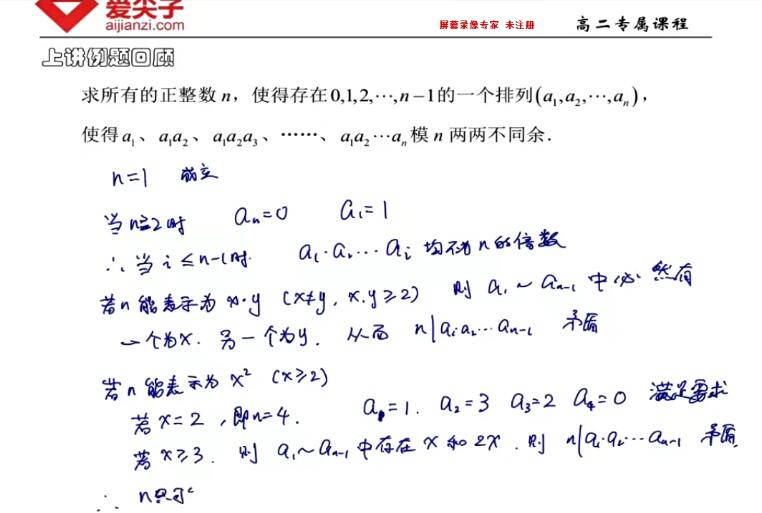 爱尖子
aijianzi.com
屏幕录像专家 未注册
高二专属课程
上讲例题回顾
求所有的正整数 n，使得存在0,1,2,⋯,n−1的一个排列(a₁,a₂,⋯,aₙ)，
使得a₁、a₁a₂、a₁a₂a₃、……、a₁a₂⋯aₙ模 n 两两不同余.
n=1 成立
当n≥2时 aₙ=0 a₁=1
∴当 i≤n-1时. a₁·a₂…aᵢ 均不为n的倍数
若n能表示为x·y (x≠y, x.y≥2) 则 a₁~aₙ₋₁ 中必然有
一个为x. 另一个为y. 从而 n|a₁a₂…aₙ₋₁ 矛盾
若n能表示为x² (x≥2)
若x=2，即n=4. a₁=1. a₂=3 a₃=2 a₄=0 满足要求
若x≥3. 则 a₁~aₙ₋₁中存在 x 和 2x. 则 n|a₁·a₂…aₙ₋₁ 矛盾.
∴ n只可